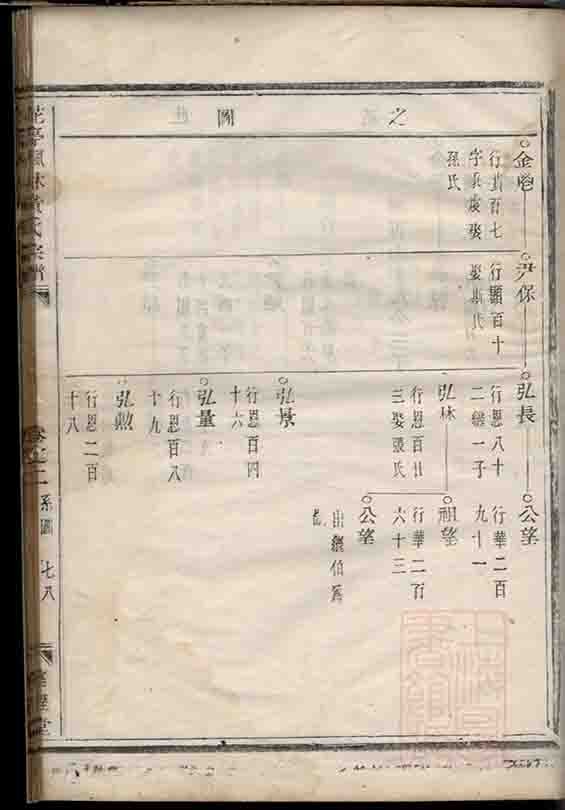 之 圖 世
金
行 百七
孫氏
尹保
行顯百十
娶 氏
弘長
行恩八十
二繼一子
公望
行華二百
九十一
弘林
行恩百廿
三娶張氏
祖望
行華二百
六十三
公望
出繼伯爲
弘景
行恩百四
十六
弘量
行恩百八
十九
弘勲
行恩二百
十八
黃氏宗譜
卷之二
系圖
七八
堂